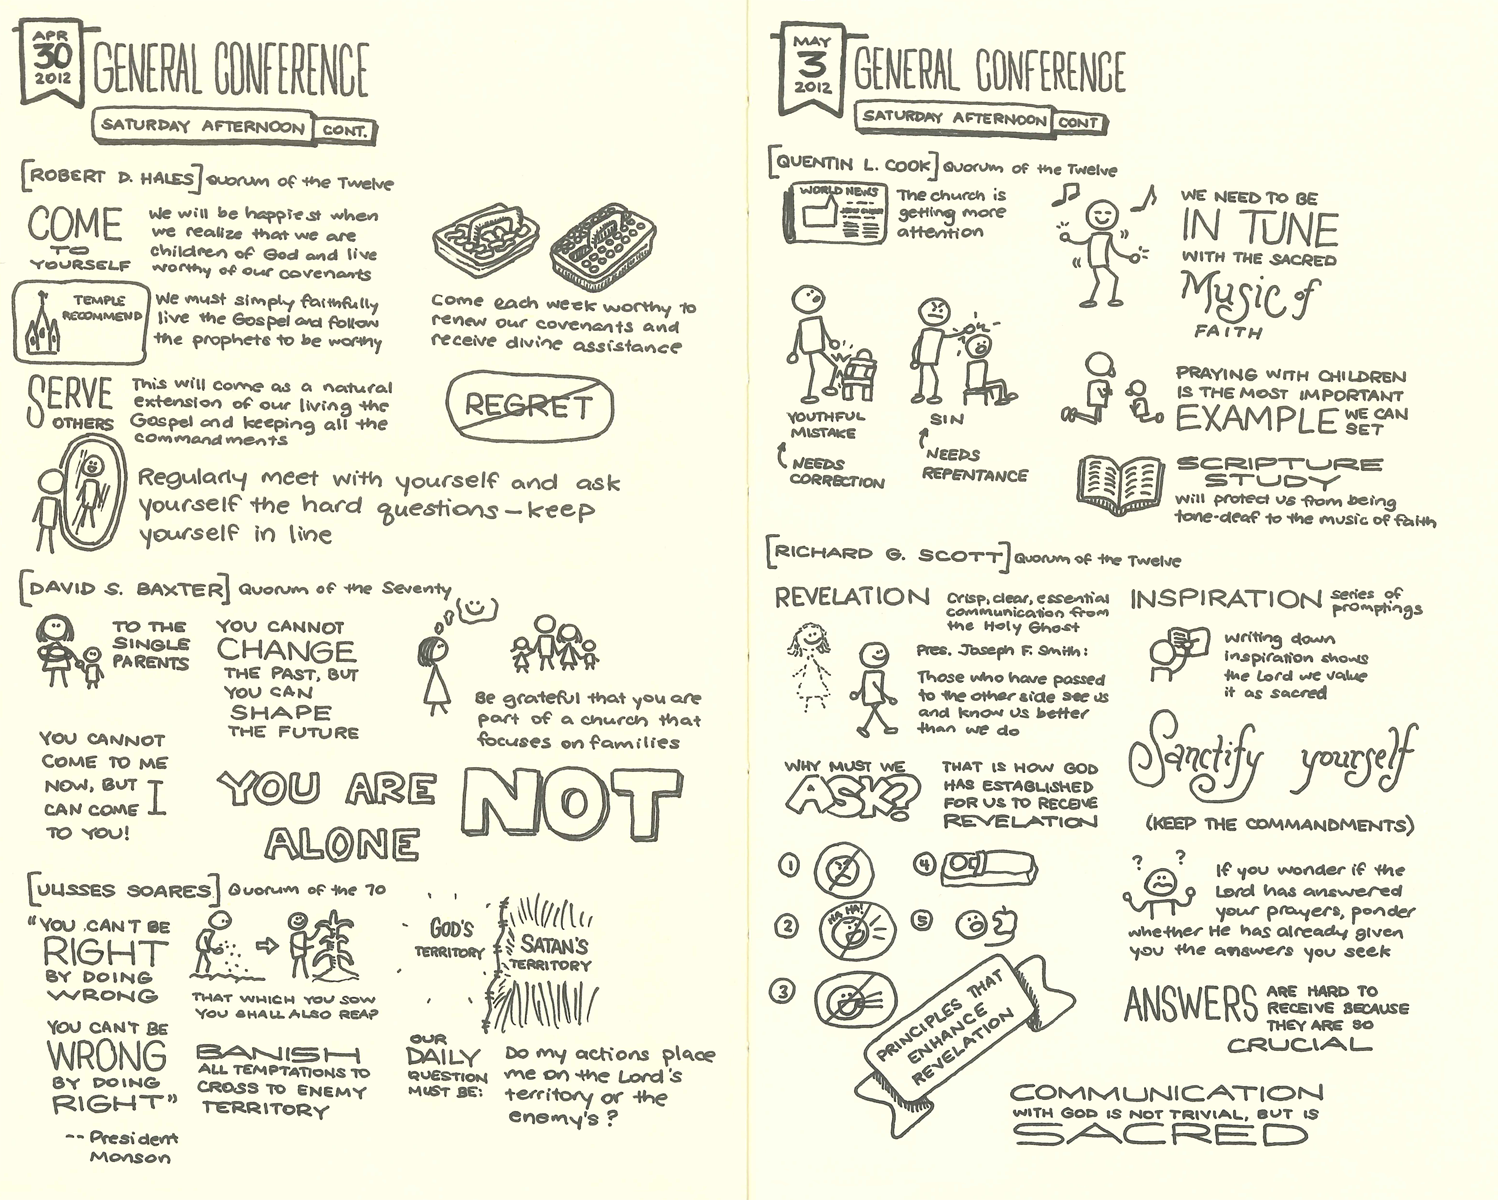 APR
30
2012
GENERAL CONFERENCE
SATURDAY AFTERNOON CONT.
[ROBERT D. HALES] Quorum of the Twelve
COME
TO
YOURSELF
We will be happiest when
we realize that we are
children of God and live
worthy of our covenants
TEMPLE
RECOMMEND
We must simply faithfully
live the Gospel and follow
the prophets to be worthy
SERVE
OTHERS
This will come as a natural
extension of our living the
Gospel and keeping all the
commandments
Come each week worthy to
renew our covenants and
receive divine assistance
REGRET
Regularly meet with yourself and ask
yourself the hard questions—keep
yourself in line
[DAVID S. BAXTER] Quorum of the Seventy
TO THE
SINGLE
PARENTS
YOU CANNOT
CHANGE
THE PAST, BUT
YOU CAN
SHAPE
THE FUTURE
Be grateful that you are
part of a church that
focuses on families
YOU CANNOT
COME TO ME
NOW, BUT I
CAN COME
TO YOU!
YOU ARE NOT
ALONE
[ULISSES SOARES] Quorum of the 70
"YOU CAN'T BE
RIGHT
BY DOING
WRONG
YOU CAN'T BE
WRONG
BY DOING
RIGHT"
-- President
Monson
THAT WHICH YOU SOW
YOU SHALL ALSO REAP
BANISH
ALL TEMPTATIONS TO
CROSS TO ENEMY
TERRITORY
GOD'S
TERRITORY
SATAN'S
TERRITORY
OUR
DAILY
QUESTION
MUST BE:
Do my actions place
me on the Lord's
territory or the
enemy's?
MAY
3
2012
GENERAL CONFERENCE
SATURDAY AFTERNOON CONT
[QUENTIN L. COOK] Quorum of the Twelve
WORLD NEWS
The church is
getting more
attention
WE NEED TO BE
IN TUNE
WITH THE SACRED
Music of
FAITH
YOUTHFUL
MISTAKE
NEEDS
CORRECTION
SIN
NEEDS
REPENTANCE
PRAYING WITH CHILDREN
IS THE MOST IMPORTANT
EXAMPLE WE CAN
SET
SCRIPTURE
STUDY
will protect us from being
tone-deaf to the music of faith
[RICHARD G. SCOTT] Quorum of the Twelve
REVELATION
Crisp, clear, essential
communication from
the Holy Ghost
Pres. Joseph F. Smith:
Those who have passed
to the other side see us
and know us better
than we do
INSPIRATION series of
promptings
writing down
inspiration shows
the Lord we value
it as sacred
WHY MUST WE
ASK?
THAT IS HOW GOD
HAS ESTABLISHED
FOR US TO RECEIVE
REVELATION
Sanctify yourself
(KEEP THE COMMANDMENTS)
1
2
HA HA!
3
4
5
PRINCIPLES THAT
ENHANCE
REVELATION
? ?
If you wonder if the
Lord has answered
your prayers, ponder
whether He has already given
you the answers you seek
ANSWERS ARE HARD TO
RECEIVE BECAUSE
THEY ARE SO
CRUCIAL
COMMUNICATION
WITH GOD IS NOT TRIVIAL, BUT IS
SACRED